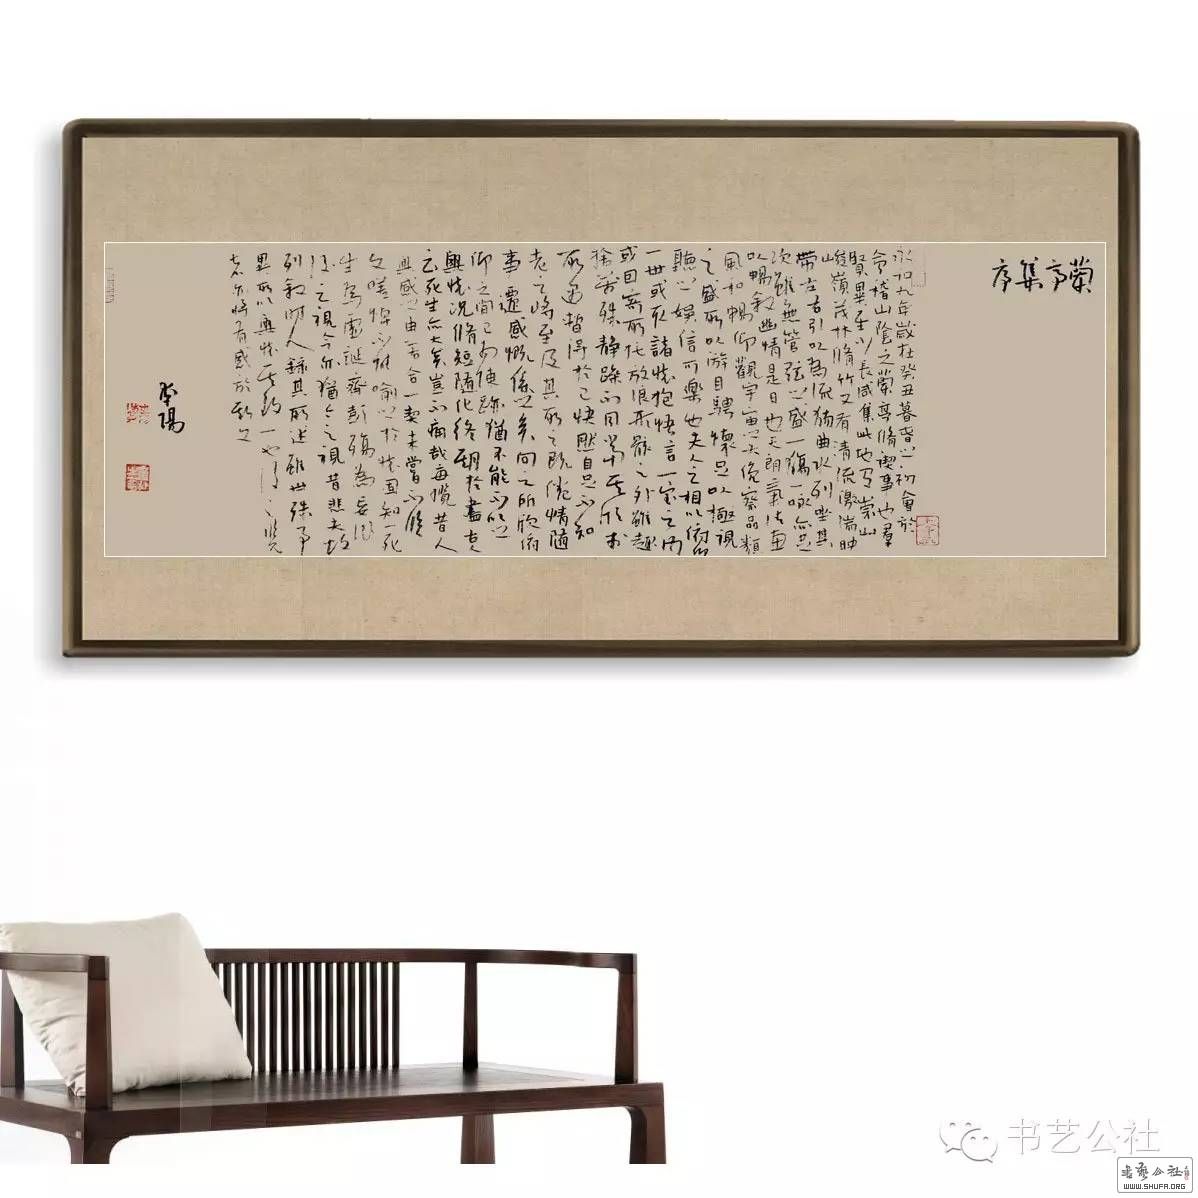 蘭亭集序
永和九年歲在癸丑暮春之初會於
會稽山陰之蘭亭脩禊事也羣
賢畢至少長咸集此地乃崇山
峻嶺茂林脩竹又有清流激湍映
帶左右引以為流觴曲水列坐其
次雖無管弦之盛一觴一詠亦足
以暢敘幽情是日也天朗氣清惠
風和暢仰觀宇宙之大俯察品類
之盛所以游目騁懷足以極視
聽之娛信可樂也夫人之相與俯仰
一世或取諸懷抱悟言一室之內
或因寄所托放浪形骸之外雖趣
殊静躁不同當其欣於
所遇暫得於己快然自足不知
老之將至及其所之既倦情隨
事遷感慨係之矣向之所欣俯
仰之間已為陳跡猶不能不以之
興懷況脩短隨化終期於盡古人
云死生亦大矣豈不痛哉每攬昔人
興感之由若合一契未嘗不臨
文嗟悼不能喻之於懷固知一死
生為虛誕齊彭殤為妄作
後之視今亦猶今之視昔悲夫故
列敘時人錄其所述雖世殊事
異所以興懷其致一也後之覽
者亦將有感於斯文
李陽
书艺公社
书艺公社
WWW.SHUFA.ORG